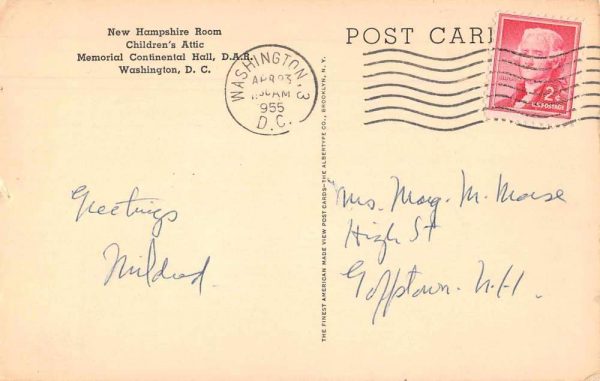 New Hampshire Room
Children's Attic
Memorial Continental Hall, D.A.R.
Washington, D. C.
POST CARD
WASHINGTON, 3
APR 23
AM
1955
D.C.
2¢
U.S. POSTAGE
THE FINEST AMERICAN MADE VIEW POST CARDS—THE ALBERTYPE CO., BROOKLYN, N.Y.
Greetings
Mildred.
Mrs. Marg. M. Morse
High St
Goffstown. N.H.